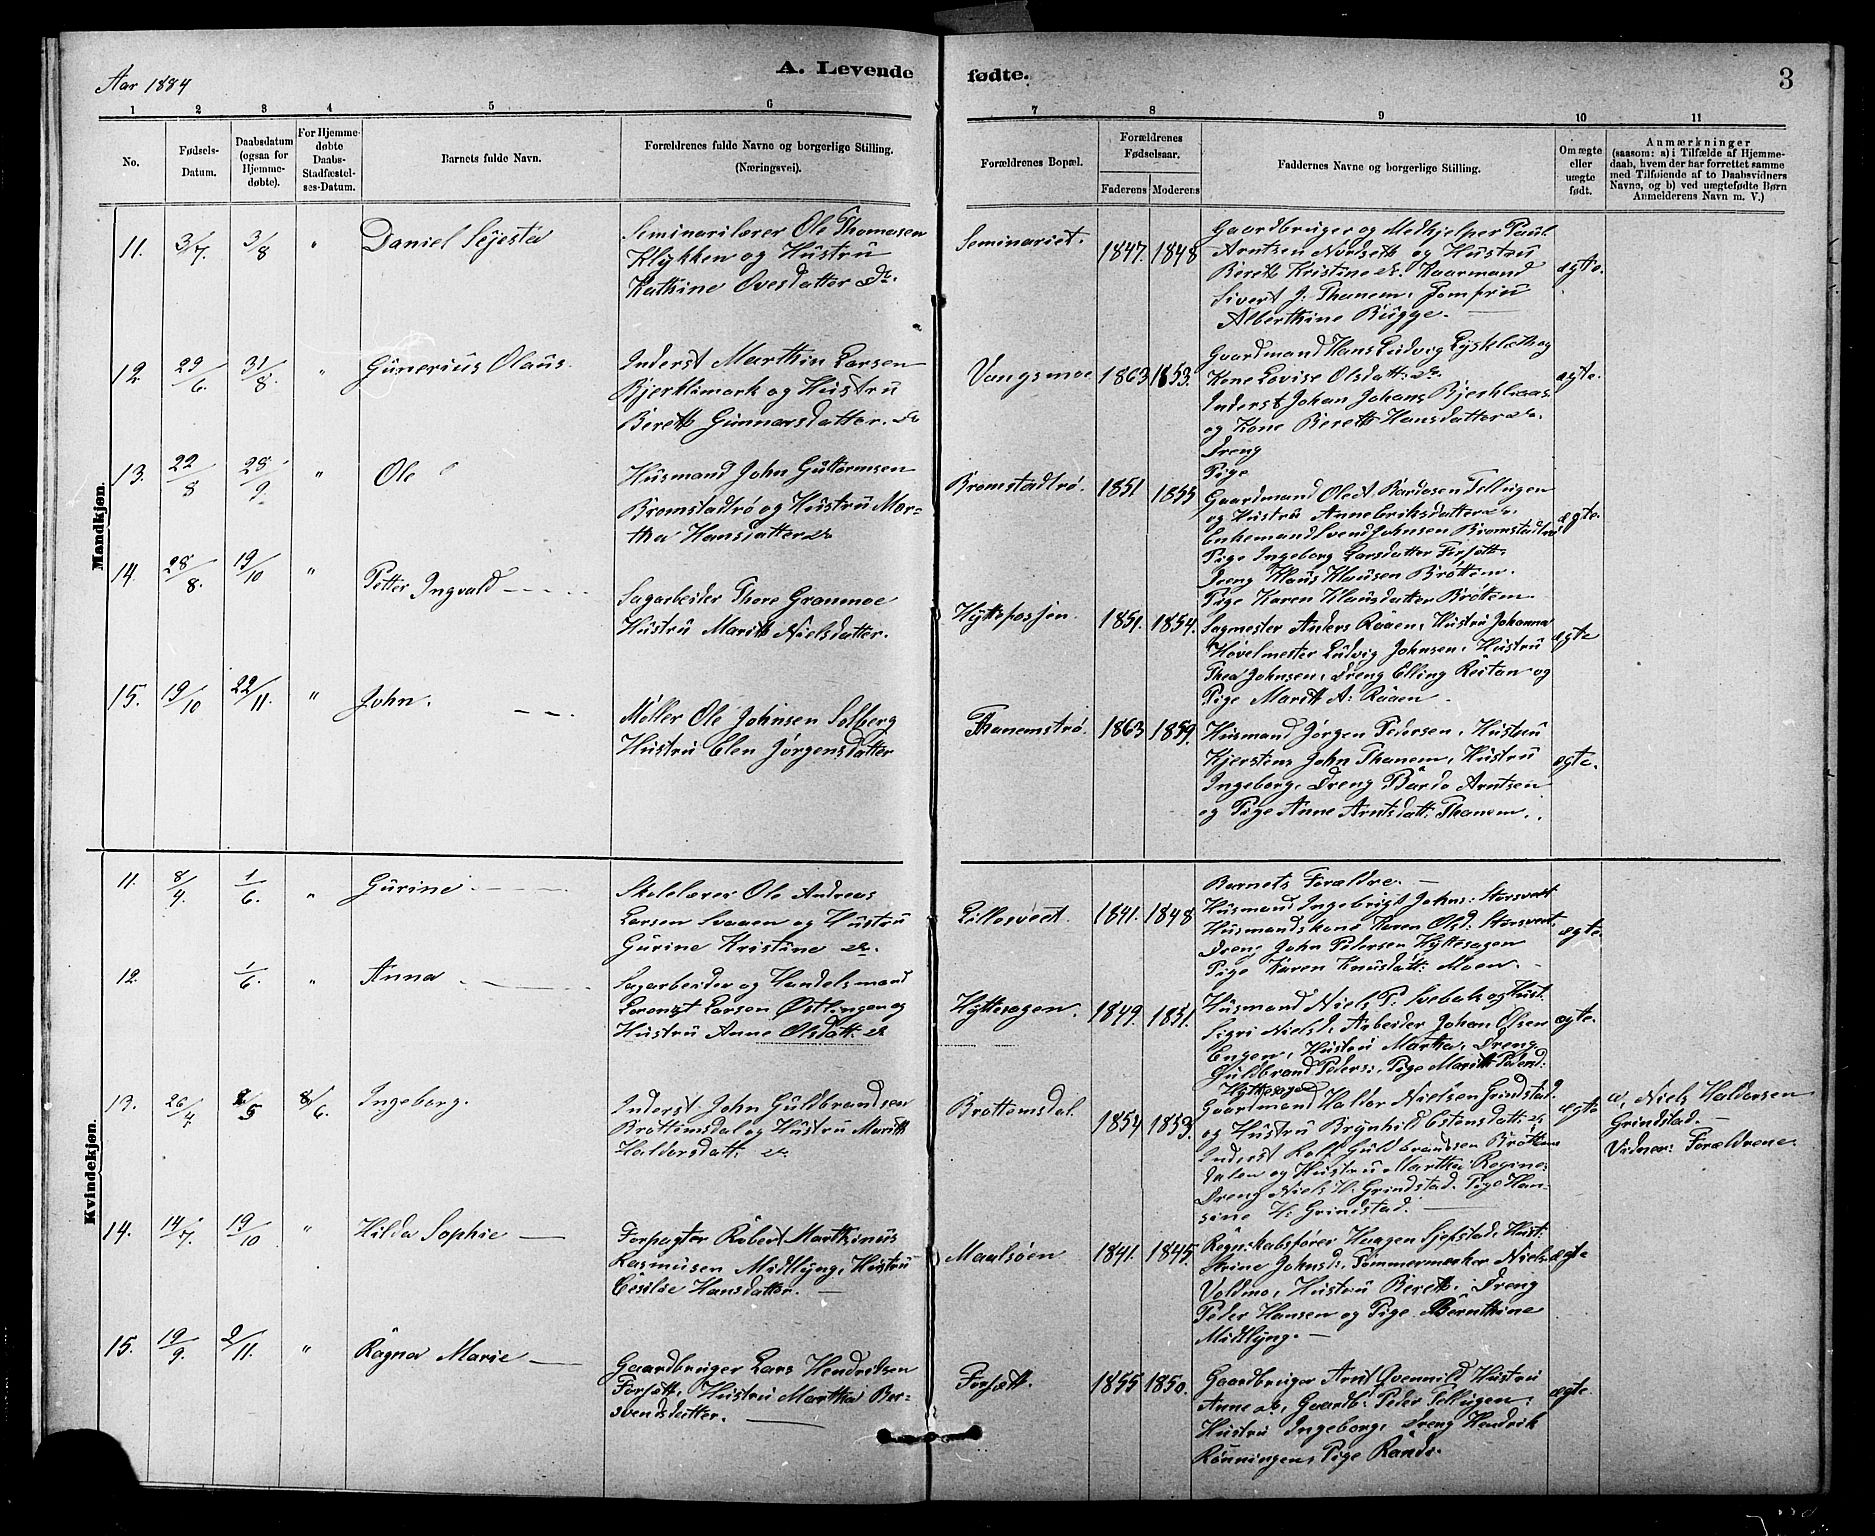 Aar 1884
A. Levende
fødte.
3
1 2 3 4 5 6
7 8 9 10 11
No.
Fødsels-
Datum.
Daabsdatum
(ogsaa for
Hjemme-
døbte).
For Hjemme-
døbte
Daabs-
Stadfæstel-
ses-Datum.
Barnets fulde Navn.
Forældrenes fulde Navne og borgerlige Stilling.
(Næringsvei).
Forældrenes Bopæl.
Forældrenes
Fødselsaar.
Faderens Moderens
Faddernes Navne og borgerlige Stilling.
Om ægte
eller
uægte
født.
Anmærkninger
(saasom: a) i Tilfælde af Hjemme-
daab, hvem der har forrettet samme
med Tilføiende af to Daabsvidners
Navne, og b) ved uægtefødte Børn
Anmelderens Navn m. V.)
Mandkjøn.
11. 3/7. 3/8 " Daniel Sejesta
Seminarilærer Ole Thomasen
Klykken og Hustru
Kathine Ovesdatter do.
Seminariet. 1847. 1848
Gaardbruger og Medhjelper Paul
Arntsen Nordseth og Hustru
Berett Kristine do. Gaarmand
Sivert J. Thanem, Jomfru
Alberthine Bugge.
ægte.
12. 29/6. 31/8. " Gunerius Olaus.
Inderst Marthin Larsen
Bjerklimark og Hustru
Berett Gunnarsdatter. do
Vangsmoe 1863 1853.
Gaardmand Hans Ludvig Lyskleth og
Kone Lovise Olsdatt: do.
Inderst Johan Johans Bjerkliaas
og Kone Berett Hansdatter do.
Dreng
Pige
ægte.
13. 22/8 28/9. " Ole
Husmand John Guttormsen
Bromstadtrø og Hustru Mar-
tha Hansdatter do
Bromstadtrø. 1851. 1855
Gaardmand Oledt Bardosen Tellugen
og Hustru Anne Eriksdatter do.
Enkemand Svend Johnsen Bromstadtrø
Pige Ingeborg Larsdatter Forsøtt.
Dreng Klaus Klausen Brøttem.
Pige Karen Klausdatter Brøttem.
ægte.
14. 28/8. 19/10 " Petter Ingvald
Sagarbeider Thore Granmoe
Hustru Marit Nielsdatter.
Hyttefossen. 1851. 1854.
Sagmester Anders Raaen, Hustru Johanna
Høvelmester Ludvig Johnsen, Hustru
Thea Johnsen, Dreng Elling Reitan og
Pige Maritt A: Raaen.
ægte
15. 19/10 22/11. " John.
Møller Ole Johnsen Solberg
Hustru Elen Jørgensdatter
Thanemstrø. 1863 1859.
Husmand Jørgen Pedersen, Hustru
Kjersten, John Thanem, Hustru
Ingeborg, Dreng Bardo Arntsen
og Pige Anne Arntsdatt: Thanem.
ægte.
Kvindekjøn.
11. 8/4. 1/6. " Gurine
Skolelærer Ole Andreas
Larsen Svaaen og Hustru
Gurine Kristine do.
Lillesveet. 1841. 1848
Barnets Forældre.
Husmand Ingebrigt Johns: Storsveet
Husmandskone Karen Olsd. Storsveet.
Dreng John Petersen Hyttesagen
Pige Karen Knusdatt: Moen.
ægte.
12. 1/6. " Anna
Sagarbeider og Handelsmand
Lorents Larsen Østlingen og
Hustru Anne Olsdatt. do
Hyttesagen. 1849. 1851.
Husmand Niels P: Svebak og Hust.
Sigri Nielsd, Arbeider Johan Olsen
Engen, Hustru Martha, Dreng
Guldbrand Peders:, Pige Maritt Pedersd:
Hyttesagen
ægte.
13. 26/4. 2/5 8/6. Ingeborg.
Inderst John Guldbrandsen
Brøttemsdal og Hustru Maritt
Haldorsdatt: do
Brøttemsdal. 1854 1853.
Gaardmand Haldor Nielsen Grindstad.
og Hustru Brynhild Estensdatt: do
Inderst Rolf Guldbrandsen Brøttems
dalen og Hustru Martha Regine:
Dreng Niels H: Grindstad. Pige Han-
sine H: Grindstad.
ægte
a, Niels Haldorsen
Grindstad.
Vidner: Forældrene.
14. 14/7. 19/10 " Hilda Sophie
Forpagter Robert Marthinus
Rasmusen Midlyng, Hustru
Cesilie Hansdatter.
Maalsøen 1841. 1845.
Regnskabsfører Haagen Sjefstad, Hust:
Stine Johnsd:, Tømmermerker Niels
Voldmo, Hustru Berett, Dreng
Peder Hansen og Pige Bernthine
Midlyng.
ægte
15. 19/9. 2/11. " Ragna Marie
Gaardbruger Lars Hendriksen
Forsøtt, Hustru Martha Ber-
svendsdatter.
Forsætt. 1855 1850.
Gaardbruger Arnt Qvennild Hustru
Anne do, Gaardb: Peder Tellugen:
Hustru Ingeborg, Dreng Hendrik
Rønningen, Pige Randi.
ægte.